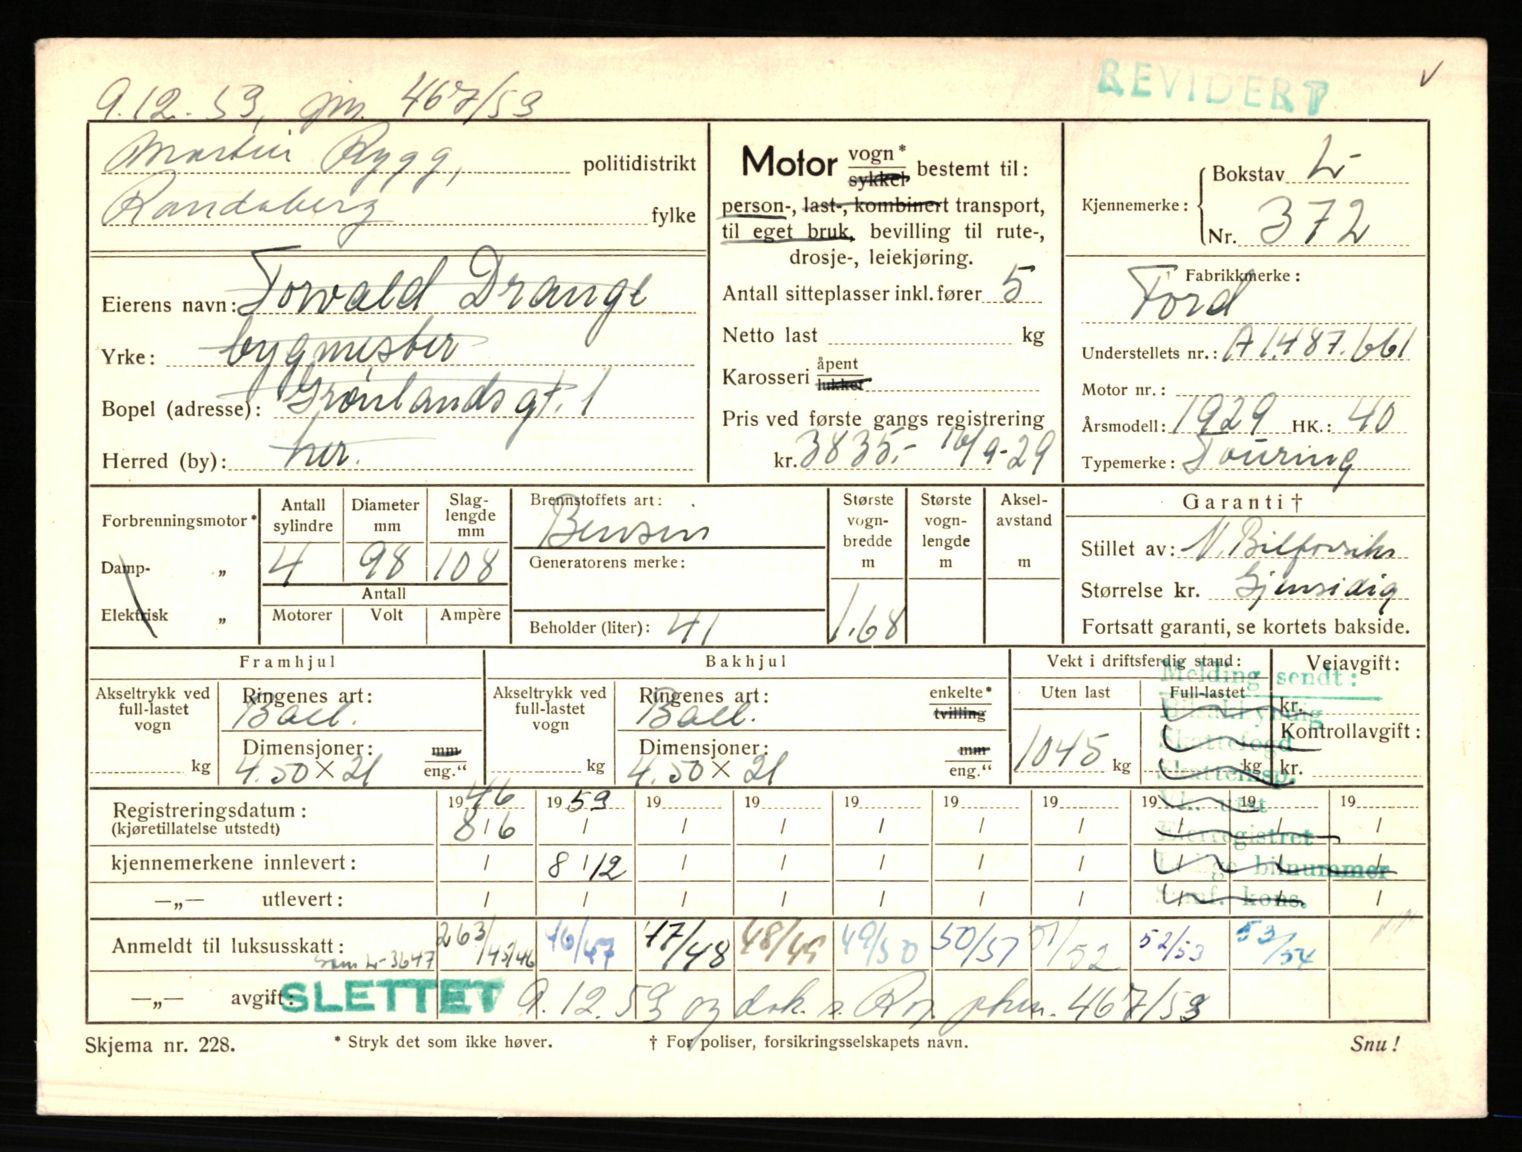 9.12.53, jnr. 467/53
REVIDERT
Martin Rygg, politidistrikt
Randaberg fylke
Eierens navn: Torvald Drange
Yrke: bygmester
Bopel (adresse): Grønlandsgt. 1
Herred (by): her.
Motor vogn* sykkel bestemt til:
person-, last-, kombinert transport,
til eget bruk, bevilling til rute-,
drosje-, leiekjøring.
Antall sitteplasser inkl. fører 5
Netto last kg
Karosseri åpent lukket
Pris ved første gangs registrering
kr. 3835,- 16/9-29
Kjennemerke: Bokstav L-
Nr. 372
Fabrikkmerke:
Ford
Understellets nr.: A1.487.661
Motor nr.:
Årsmodell: 1929 HK.: 40
Typemerke: Touring
Forbrenningsmotor*
Damp- „
Elektrisk „
Antall sylindre Diameter mm Slag-lengde mm
4 98 108
Antall
Motorer Volt Ampère
Brennstoffets art:
Bensin
Generatorens merke:
Beholder (liter): 41
Største vogn-bredde m
1.68
Største vogn-lengde m
Aksel-avstand m
Garanti †
Stillet av: N. Bilforsikr.
Størrelse kr. Gjensidig
Fortsatt garanti, se kortets bakside.
Framhjul
Akseltrykk ved full-lastet vogn
kg
Ringenes art:
Ball.
Dimensjoner: mm
4.50 × 21 eng."
Bakhjul
Akseltrykk ved full-lastet vogn
kg
Ringenes art: enkelte*
Ball. tvilling
Dimensjoner: mm
4.50 × 21 eng."
Vekt i driftsferdig stand:
Uten last Full-lastet
1045 kg kg
Veiavgift:
kr.
Kontrollavgift:
kr.
Melding sendt:
Skattefogd
Eierregistret
bilnummer
kons.
Registreringsdatum: 1946 1953 19 19 19 19 19 19 19 19
(kjøretillatelse utstedt) 8/6 / / / / / / / / /
kjennemerkene innlevert: / 8/12 / / / / / / / /
—„— utlevert: / / / / / / / / / /
Anmeldt til luksusskatt: 263/45/46 46/47 47/48 48/49 49/50 50/51 51/52 52/53 53/54
som L-3647
—„— avgift: SLETTET 9.12.53 og dok. s. Rog. 467/53
Skjema nr. 228. * Stryk det som ikke høver. † For poliser, forsikringsselskapets navn. Snu!